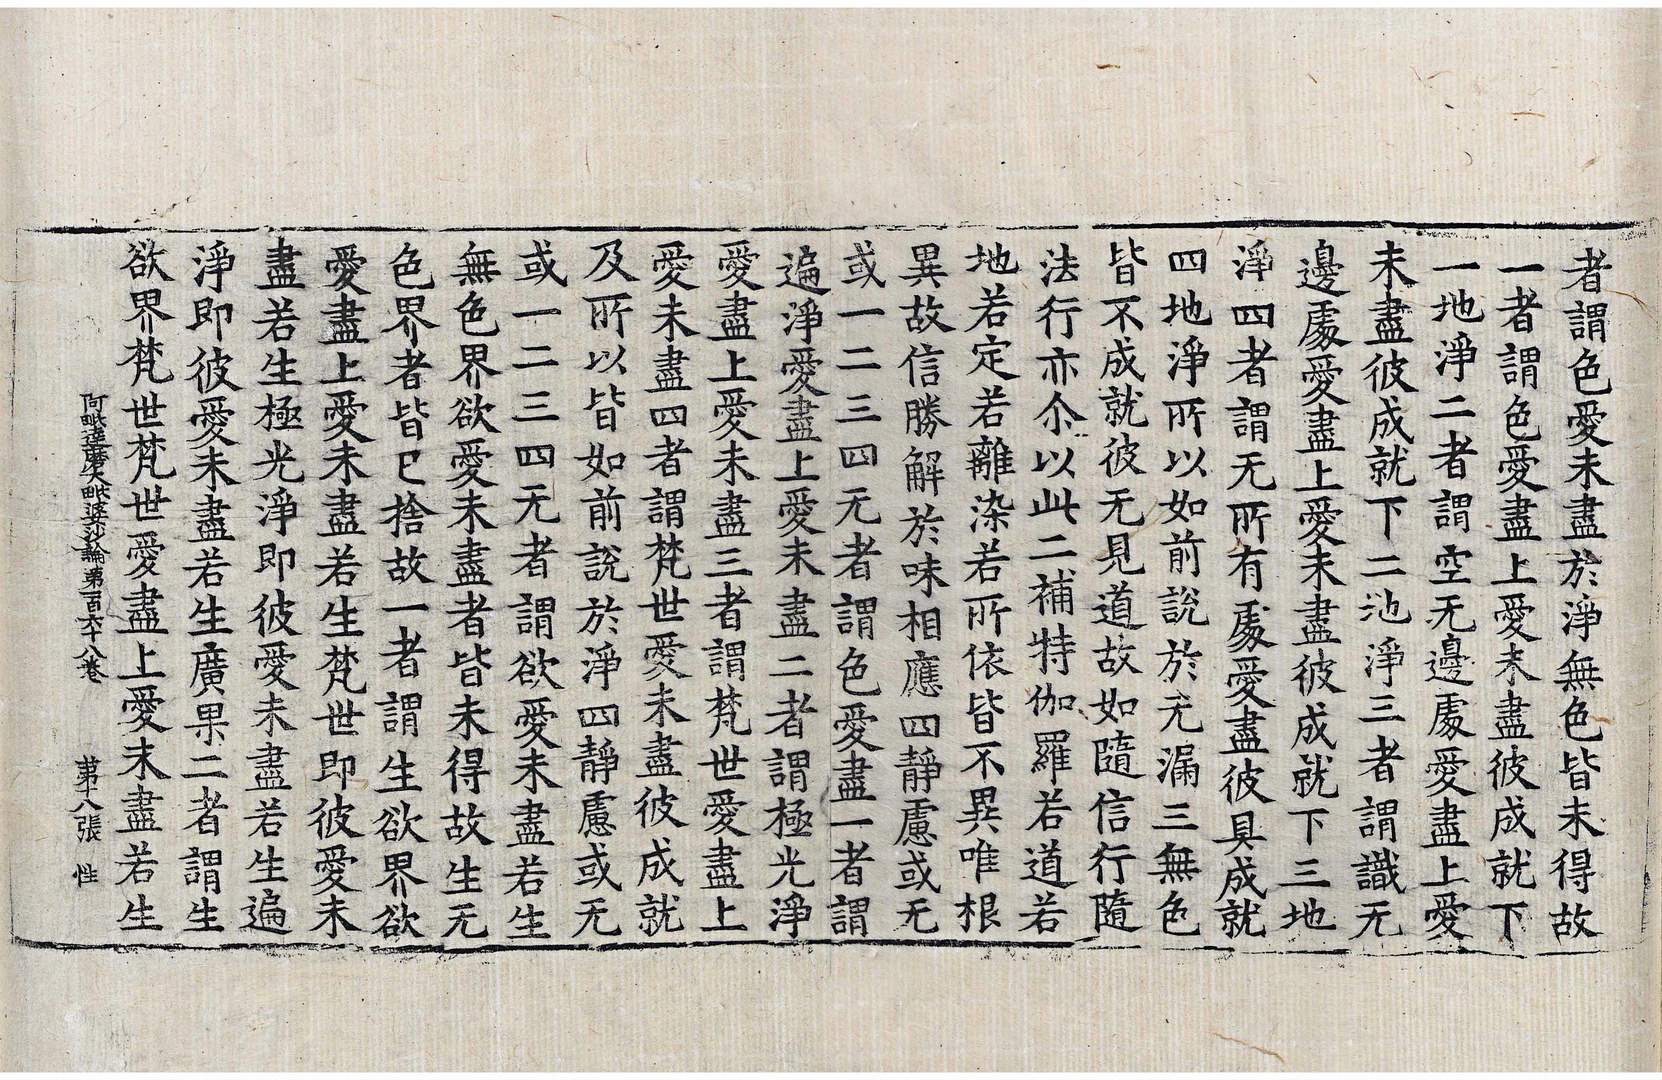 者謂色愛未盡於淨無色皆未得故
一者謂色愛盡上愛未盡彼成就下
一地淨二者謂空无邊處愛盡上愛
未盡彼成就下二地淨三者謂識无
邊處愛盡上愛未盡彼成就下三地
淨四者謂无所有處愛盡彼具成就
四地淨所以如前說於无漏三無色
皆不成就彼无見道故如隨信行隨
法行亦尒以此二補特伽羅若道若
地若定若離染若所依皆不異唯根
異故信勝解於味相應四靜慮或无
或一二三四无者謂色愛盡一者謂
遍淨愛盡上愛未盡二者謂極光淨
愛盡上愛未盡三者謂梵世愛盡上
愛未盡四者謂梵世愛未盡彼成就
及所以皆如前說於淨四靜慮或无
或一二三四无者謂欲愛未盡若生
無色界欲愛未盡者皆未得故生无
色界者皆已捨故一者謂生欲界欲
愛盡上愛未盡若生梵世即彼愛未
盡若生極光淨即彼愛未盡若生遍
淨即彼愛未盡若生廣果二者謂生
欲界梵世梵世愛盡上愛未盡若生
阿毗達磨大毗婆沙論第一百六十八卷 第十八張 性